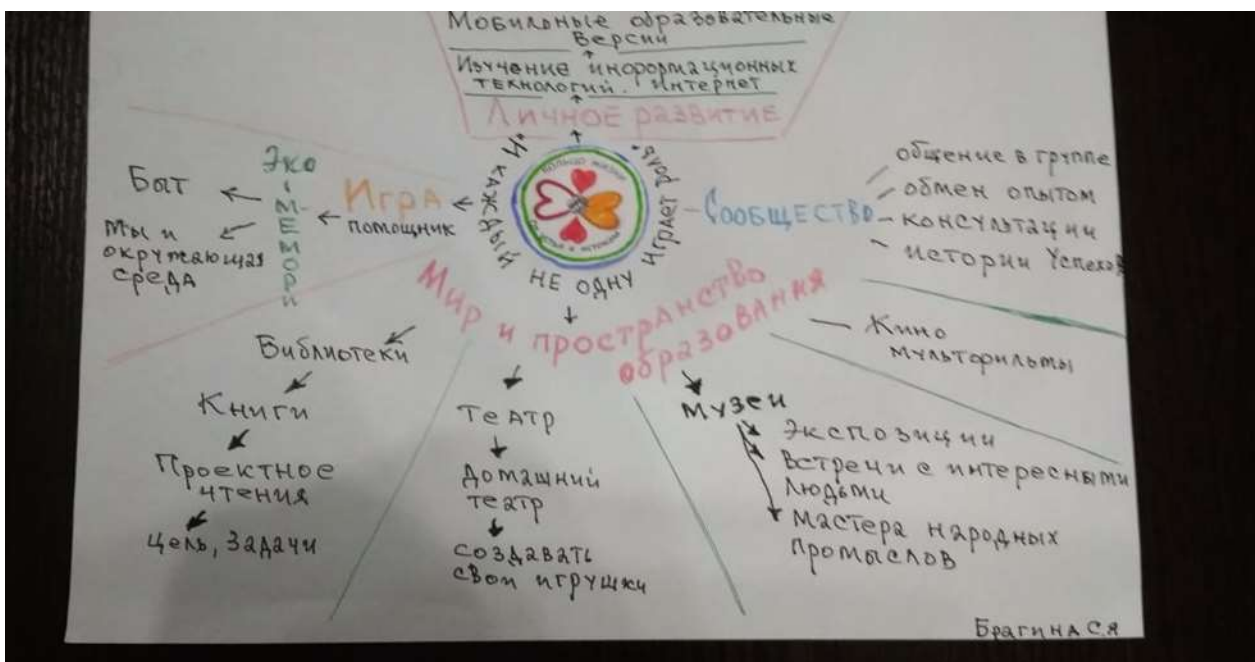 Мобильные образовательные
Версии
Изучение информационных
технологий. Интернет
Личное развитие
"И каждый не одну играет роль"
Игра
помощник
Эко
-мемори
Быт
Мы и
окружающая
среда
Сообщество
общение в группе
обмен опытом
консультации
истории Успехов
Мир и пространство
образования
Кино
мультфильты
Библиотеки
Книги
Проектное
чтения
цель, задачи
Театр
Домашний
театр
создавать
свои игрушки
Музеи
Экспозиции
Встречи с интересными
людьми
Мастера народных
промыслов
Брагина С.Я